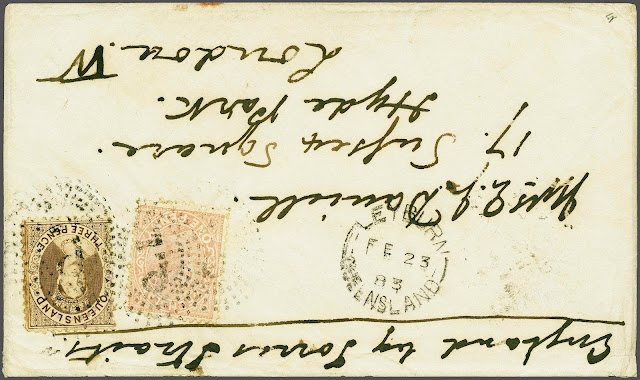 England by Torres Straits
Mrs Daniell.
17. Sussex Square.
Hyde Park.
London. W
QUEENSLAND
THREE PENCE
LEYBURN
FE 23
83
QUEENSLAND